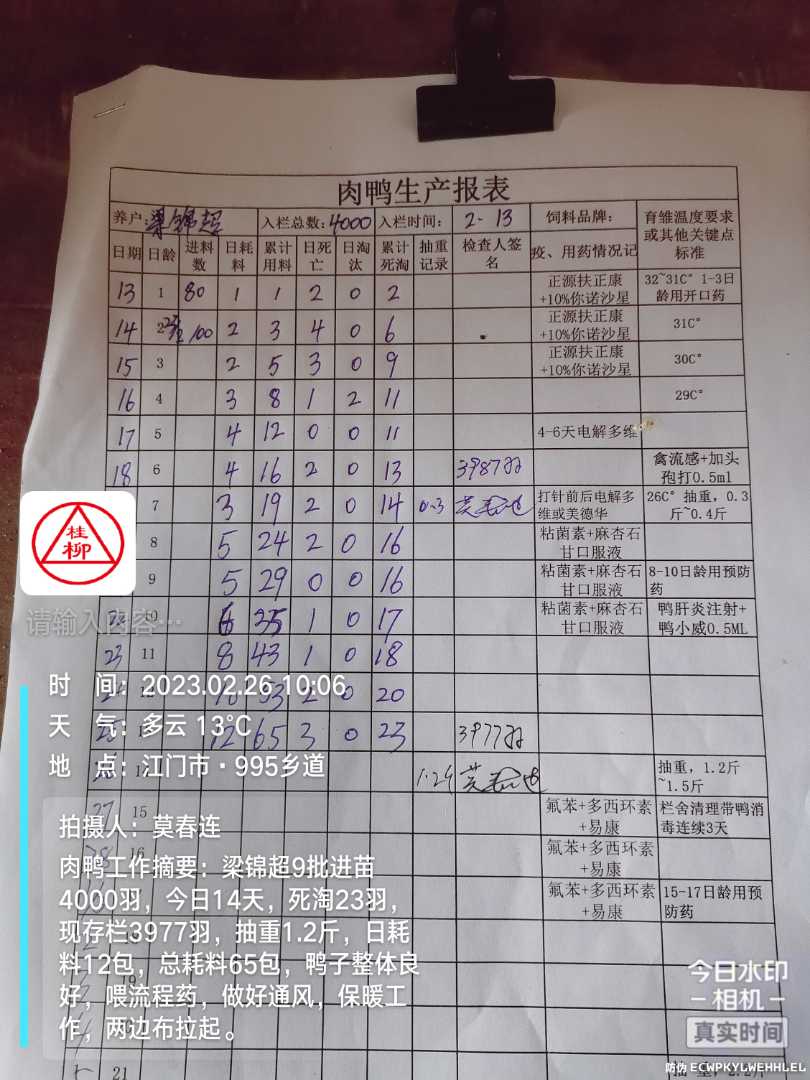 肉鸭生产报表
养户:梁锦超 入栏总数:4000 入栏时间: 2-13 饲料品牌: 育雏温度要求或其他关键点标准
日期 日龄 进料数 日耗料 累计用料 日死亡 日淘汰 累计死淘 抽重记录 检查人签名 疫、用药情况记
13 1 80 1 1 2 0 2 正源扶正康+10%你诺沙星 32~31C° 1-3日龄用开口药
14 2 100 2 3 4 0 6 正源扶正康+10%你诺沙星 31C°
15 3 2 5 3 0 9 正源扶正康+10%你诺沙星 30C°
16 4 3 8 1 2 11 29C°
17 5 4 12 0 0 11 4-6天电解多维
18 6 4 16 2 0 13 3987羽 禽流感+加头孢打0.5ml
7 3 19 2 0 14 0.3 打针前后电解多维或美德华 26C° 抽重，0.3斤~0.4斤
8 5 24 2 0 16 粘菌素+麻杏石甘口服液
9 5 29 0 0 16 粘菌素+麻杏石甘口服液 8-10日龄用预防药
10 6 35 1 0 17 粘菌素+麻杏石甘口服液 鸭肝炎注射+鸭小威0.5ML
23 11 8 43 1 0 18
10 53 2 0 20
12 65 3 0 23 3977羽
抽重，1.2斤~1.5斤
27 15 氟苯+多西环素+易康 栏舍清理带鸭消毒连续3天
16 氟苯+多西环素+易康
氟苯+多西环素+易康 15-17日龄用预防药
21
桂柳
请输入内容…
时 间：2023.02.26 10:06
天 气：多云 13℃
地 点：江门市·995乡道
拍摄人：莫春连
肉鸭工作摘要：梁锦超9批进苗
4000羽，今日14天，死淘23羽，
现存栏3977羽，抽重1.2斤，日耗
料12包，总耗料65包，鸭子整体良
好，喂流程药，做好通风，保暖工
作，两边布拉起。
今日水印
相机
真实时间
防伪 ECWPKYLWEHHLEL